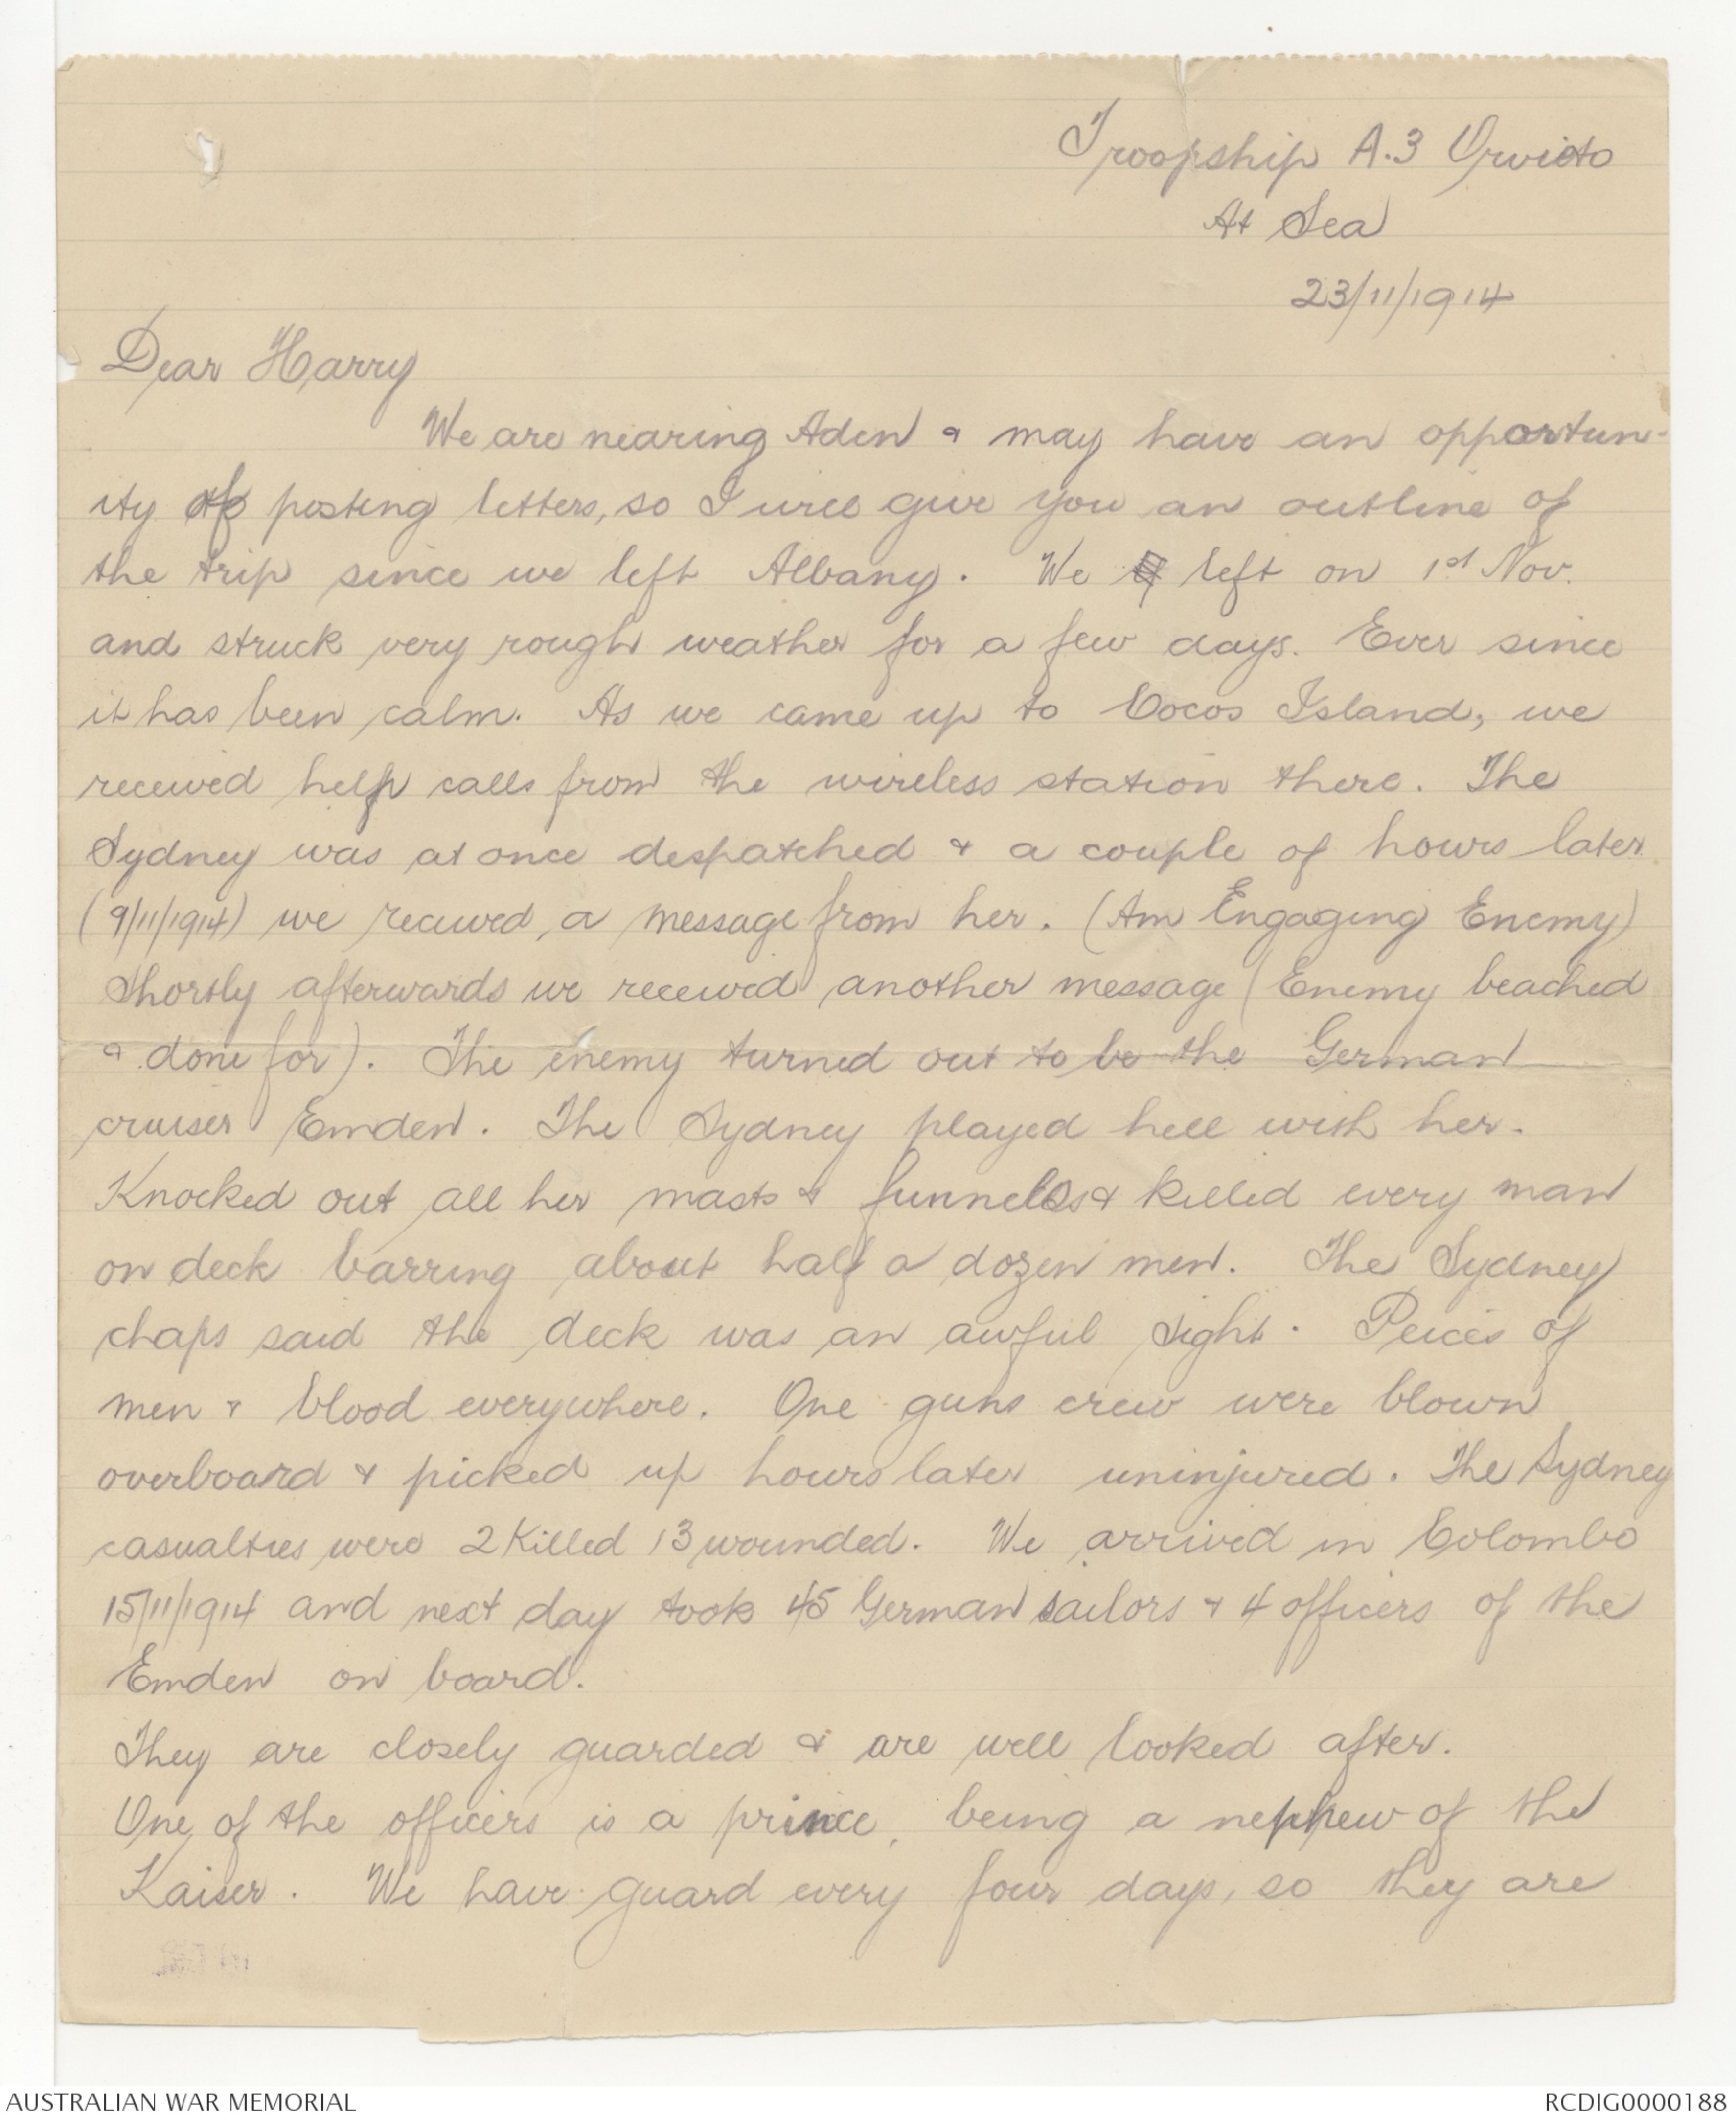 Troopship A.3 Orvieto
At Sea
23/11/1914
Dear Harry
We are nearing Aden & may have an opportun-
ity of posting letters, so I will give you an outline of
the trip since we left Albany. We left on 1st Nov.
and struck very rough weather for a few days. Ever since
it has been calm. As we came up to Cocos Island, we
received help calls from the wireless station there. The
Sydney was at once despatched & a couple of hours later
(9/11/1914) we received, a message from her. (Am Engaging Enemy)
Shortly afterwards we received another message (Enemy beached
& done for). The enemy turned out to be the German
cruiser Emden. The Sydney played hell with her.
Knocked out all her masts & funnels & killed every man
on deck barring about half a dozen men. The Sydney
chaps said the deck was an awful sight. Peices of
men & blood everywhere. One guns crew were blown
overboard & picked up hours later uninjured. The Sydney
casualties were 2 Killed 13 wounded. We arrived in Colombo
15/11/1914 and next day took 45 German sailors & 4 officers of the
Emden on board.
They are closely guarded & are well looked after.
One of the officers is a prince, being a nephew of the
Kaiser. We have guard every four days, so they are
AUSTRALIAN WAR MEMORIAL
RCDIG0000188